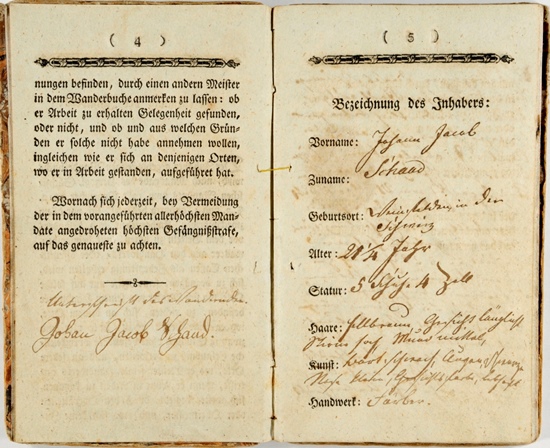 ( 4 )
nungen befinden, durch einen andern Meister
in dem Wanderbuche anmerken zu lassen: ob
er Arbeit zu erhalten Gelegenheit gefunden,
oder nicht, und ob und aus welchen Grün-
den er solche nicht habe annehmen wollen,
ingleichen wie er sich an denjenigen Orten,
wo er in Arbeit gestanden, aufgeführet hat.
Wornach sich jederzeit, bey Vermeidung
der in dem vorangeführten allerhöchsten Man-
date angedroheten höchsten Gefängnißstrafe,
auf das genaueste zu achten.
Unterschrift des Wandernden.
Johan Jacob Schaad.
( 5 )
Bezeichnung des Inhabers:
Vorname: Johann Jacob
Zuname: Schaad
Geburtsort: in der
Schweiz
Alter: 21 1/4 Jahr
Statur: 5 Schuh 4 Zoll
Haare: hellbraun, Gesicht länglicht
Stirne hoch Mund mittel,
Kunst: Bart schwach, Augen
Nase klein, Gesichts Farbe
Handwerk: Färber.